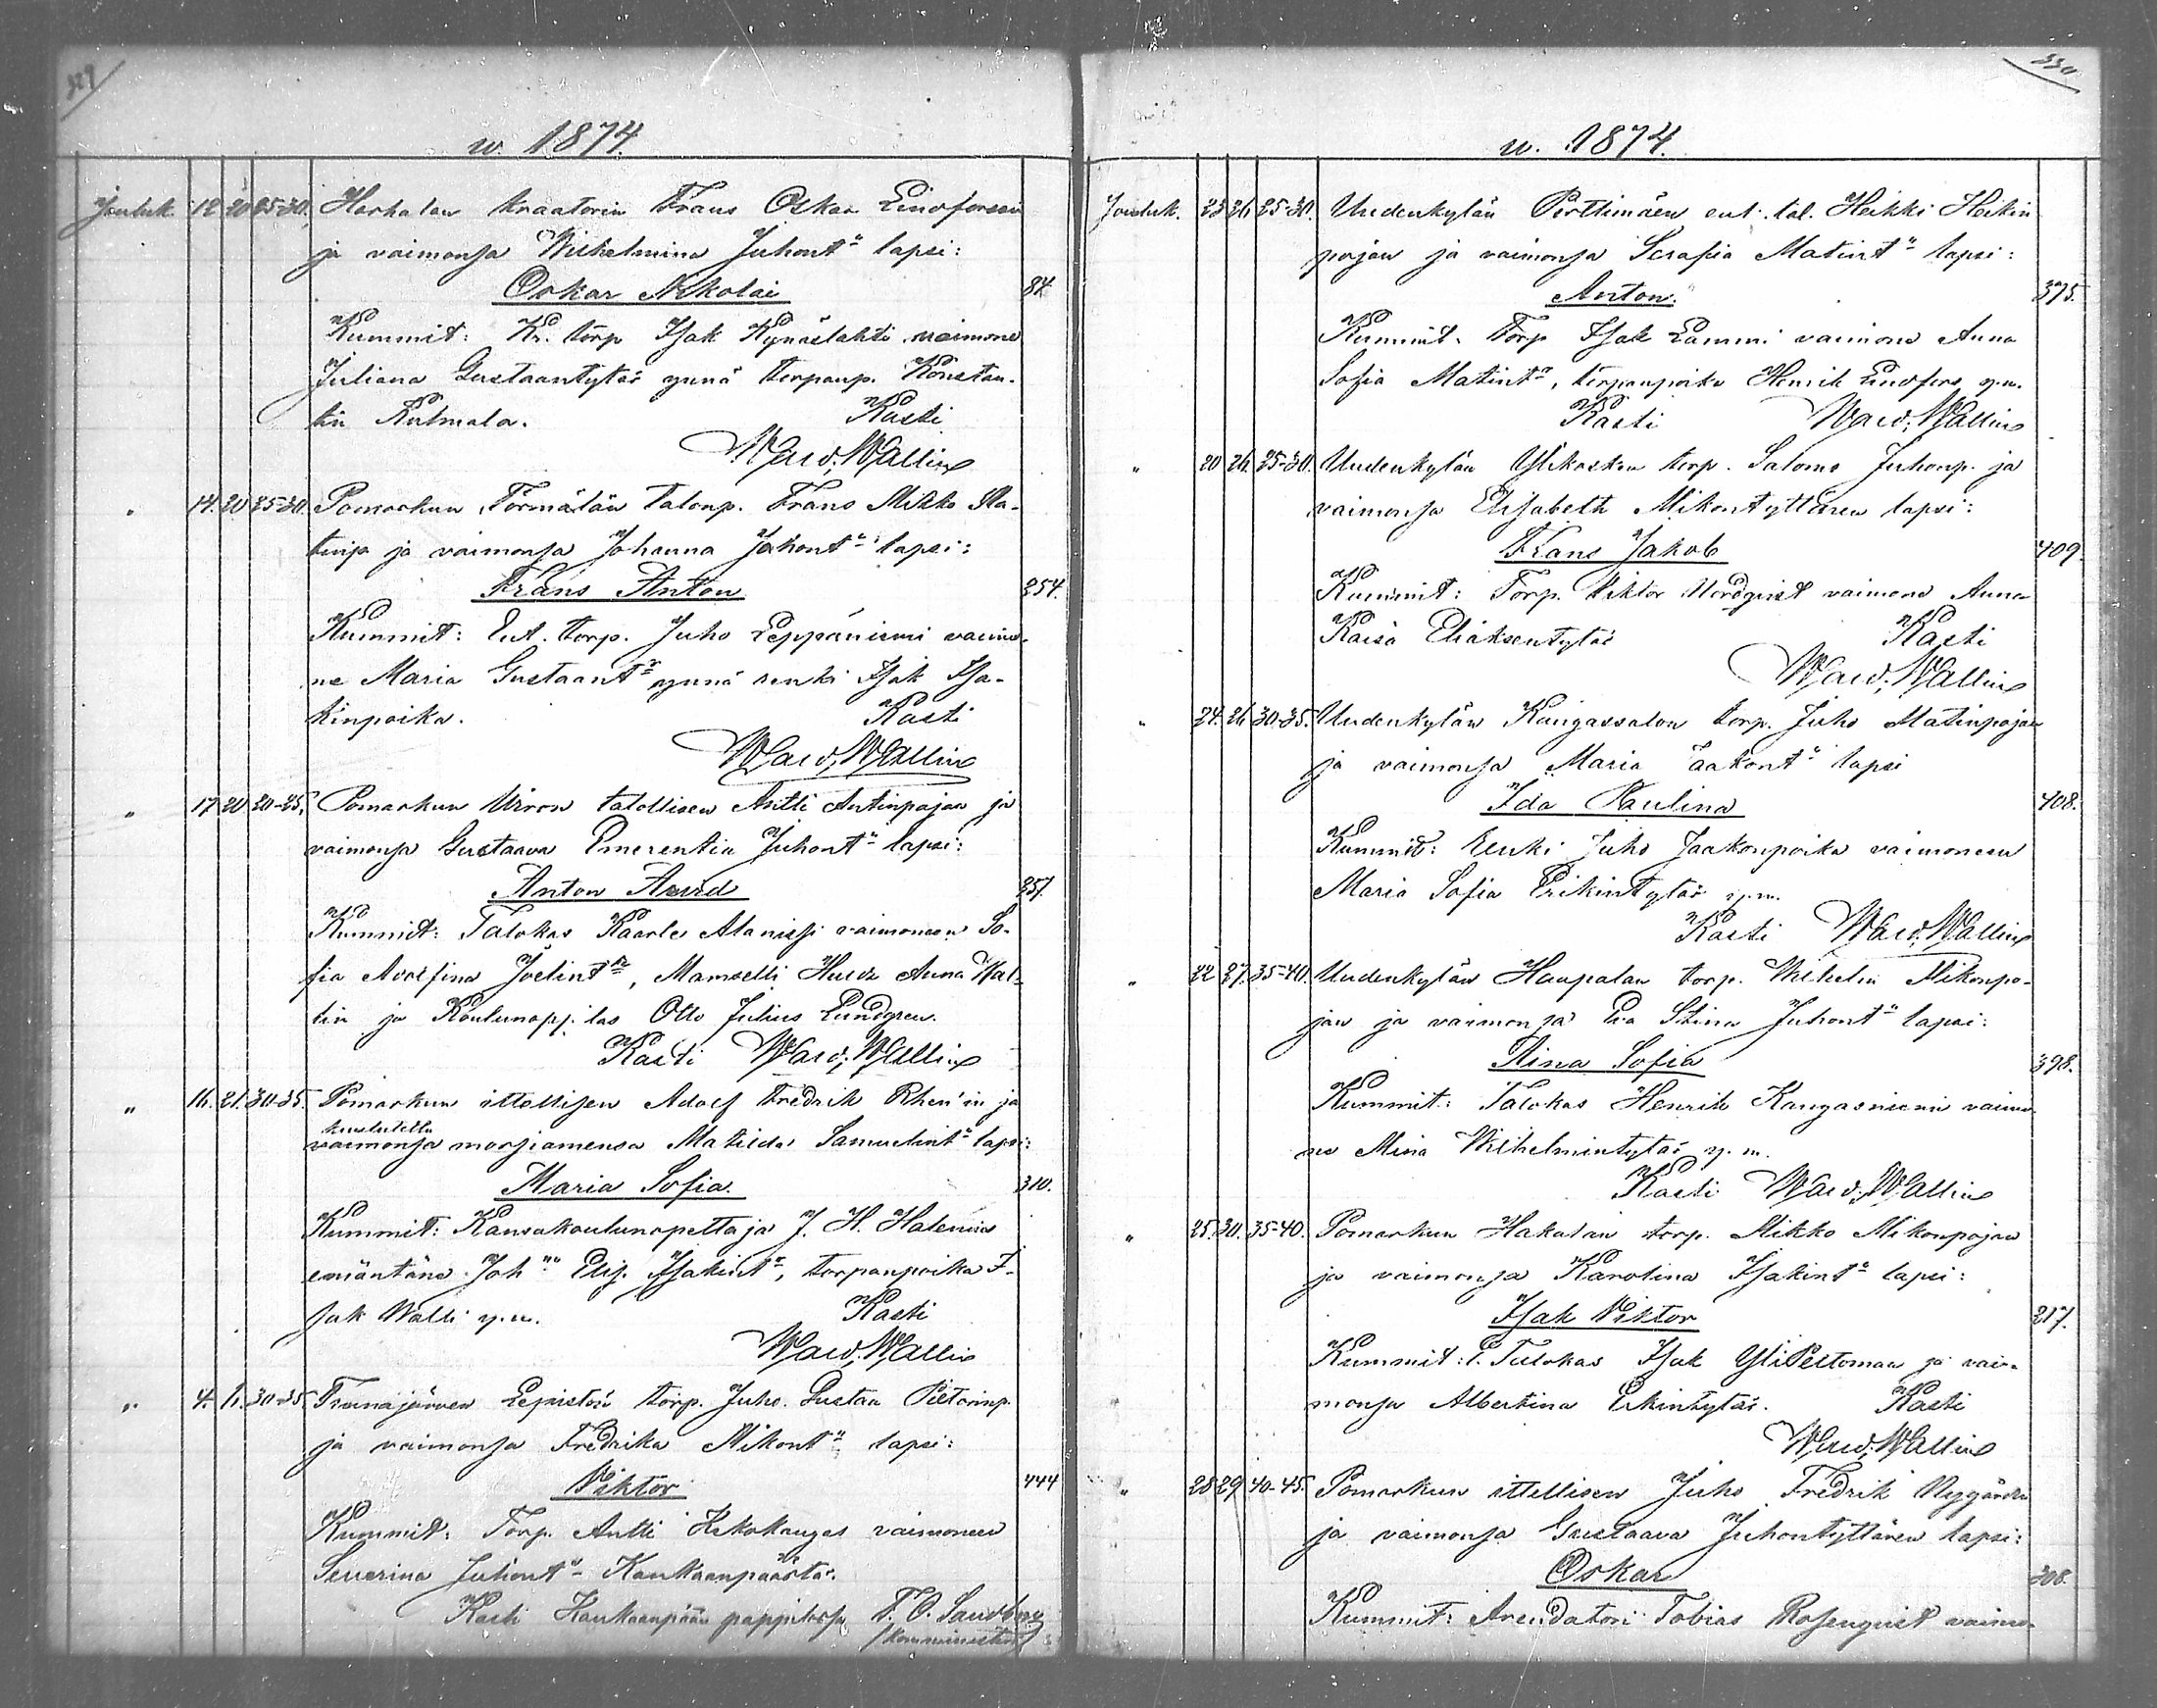 329
w. 1874.
Jouluk. 12 20 25-30. Harhalan kraatorin Frans Oskar Lindforssin
ja vaimonsa Wilhelmina Juhont:r lapsi:
Oskar Nikolai 84
Kummit: Kr. torp Isak Kynäslahti vaimone
Juliana Gustaantytär ynnä torpanp. Konstan-
tin Kulmala. Kasti
Waw. Wallin
" 14. 20 25-30. Pomarkun Törmälän talonp. Frans Mikko Ma-
tinp ja vaimonsa Johanna Juhont:r lapsi:
Frans Anton 254.
Kummit: Ent. torp. Juho Leppäniemi vaimo-
ne Maria Gustaant:r ynnä renki Isak Isa-
kinpoika. Kasti
Waw. Wallin
" 17 20 20-25. Pomarkun Uiron talollisen Antti Antinpojan ja
vaimonsa Gustaava Emerentia Juhont:r lapsi:
Anton Arvid 257.
Kummit: Talokas Kaarle Alanissi vaimoneen So-
fia Adolfina Joelint:r, Mamselli Hulda Anna Wal-
lin ja Koulunopp.ilas Otto Julius Lundgren.
Kasti Waw. Wallin
" 16. 21. 30-35. Pomarkun ittellisen Adolf Fredrik Rhen'in ja
kuulutettu
vaimonsa morsiamensa Matilda Samuelint:r lapsi:
Maria Sofia. 310.
Kummit: Kansakoulunopettaja J. H. Halenius
emäntäne Joh:na Elis. Isakint:r, torpanpoika I-
sak Walli y.m. Kasti
Waw. Wallin
" 4. 6. 30-35 Trunajärven Lepistön torp. Juho Gustaa Pietarinp.
ja vaimonsa Fredrika Mikont:r lapsi:
Viktor 444
Kummit: Torp. Antti Kekokangas vaimoneen
Severina Juhont:r Kankaanpäästä.
Kasti Kankaanpään pappilassa F. O. Sandberg
/komministeri/
330
w. 1874.
Jouluk. 23 26 25-30. Uudenkylän Perttimäen ent. tal. Heikki Heikin
pojan ja vaimonsa Serafia Matint:r lapsi:
Anton. 375.
Kummit. Torp Isak Lammi vaimone Anna
Sofia Matint:r, torpanpoika Henrik Lindfors y.m.
Kasti Waw. Wallin
" 20 26. 25-30. Uudenkylän Ylikosken torp. Salomo Juhonp. ja
vaimonsa Elisabeth Mikontyttären lapsi:
Frans Jakob 409.
Kummit: Torp. Viktor Nordqvist vaimone Anna
Kaisa Eliaksentytär Kasti
Waw. Wallin
" 24. 26 30-35. Uudenkylän Kangassalon torp. Juho Matinpojan
ja vaimonsa Maria Jaakont:r lapsi
Ida Paulina 408.
Kummit: Renki Juho Jaakonpoika vaimoneen
Maria Sofia Erikintytär y.m.
Kasti Waw. Wallin
" 22 27. 35-40. Uudenkylän Haapalan torp. Wilhelm Mikonpo-
jan ja vaimonsa Eva Stina Juhont:r lapsi:
Aina Sofia 398.
Kummit: Talokas Henrik Kangasniemi vaimo
ne Mina Wilhelmintytär y. m.
Kasti Waw. Wallin
" 25. 30. 35-40. Pomarkun Hakalan torp. Mikko Mikonpojan
ja vaimonsa Karolina Isakint:r lapsi:
Isak Viktor 217.
Kummit: E. Talokas Isak YliPeltomaa ja vai-
monsa Albertina Erkintytär. Kasti
Waw. Wallin
" 28 29 40-45. Pomarkun ittellisen Juho Fredrik Nygårdin
ja vaimonsa Gustaava Juhontyttären lapsi:
Oskar 308.
Kummit: Arendatori Tobias Rosenqvist vaimo-